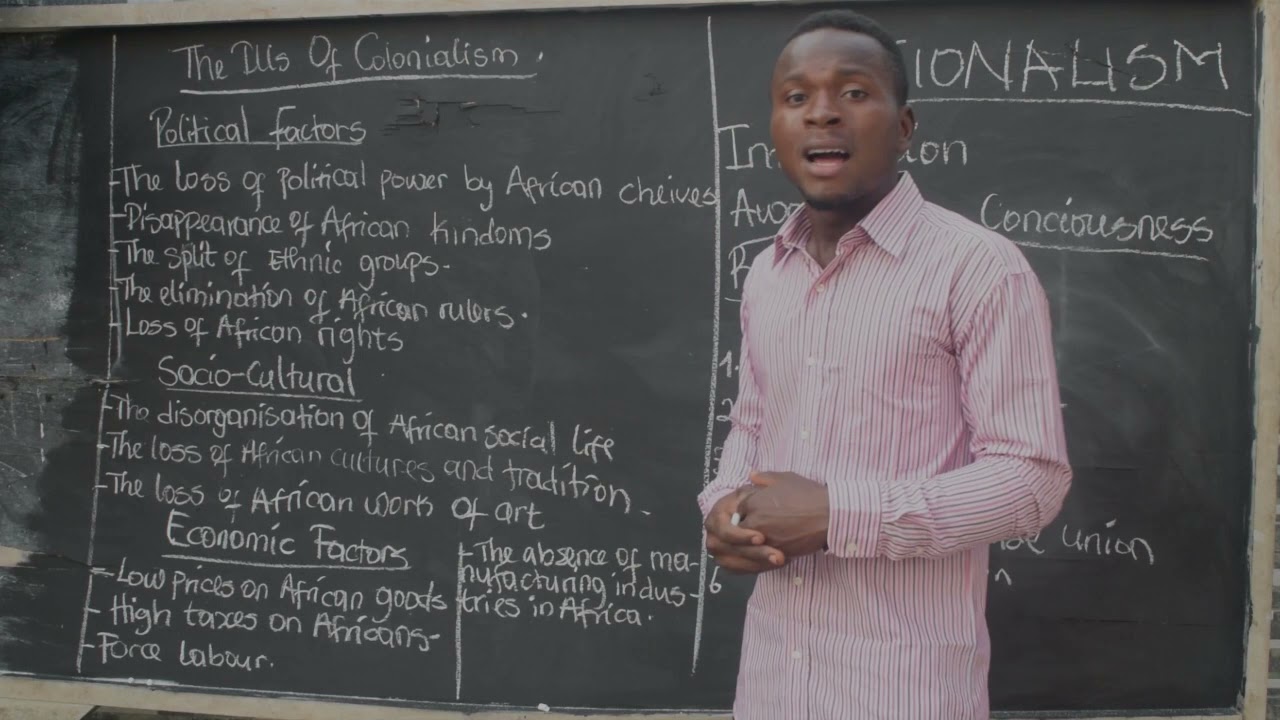 The Ills Of Colonialism.
Political factors
-The loss of Political power by African cheives
-Disappearance of African kindoms
-The split of Ethnic groups-
-The elimination of African rulers.
-Loss of African rights
Socio-Cultural
-The disorganisation of African social life
-The loss of African cultures and tradition-
-The loss of African work of art
Economic Factors
-Low prices on African goods
-High taxes on Africans-
-Force labour.
-The absence of ma-
nufacturing indus-
tries in Africa.
IONALISM
Conciousness
1.
2
6
union